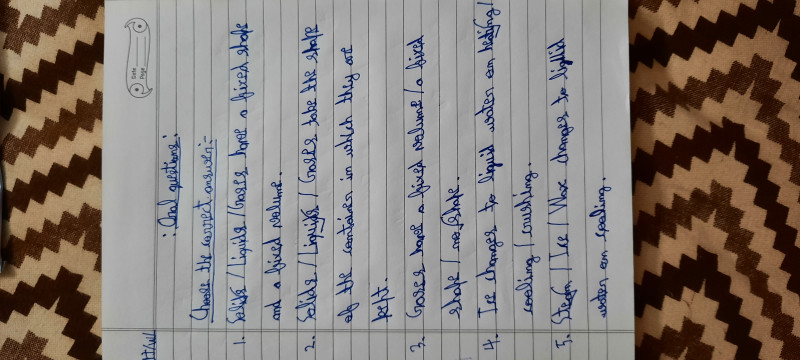 Date
Page
H/W
: Oral questions :
Choose the correct answer:-
1. Solids / Liquids / Gases have a fixed shape
and a fixed volume.
2. Solids / Liquids / Gases take the shape
of the container in which they are
kept.
3. Gases have a fixed volume / a fixed
shape / no shape.
4. Ice changes to liquid water on heating /
cooling / crushing.
5. Steam / Ice / Wax changes to liquid
water on cooling.